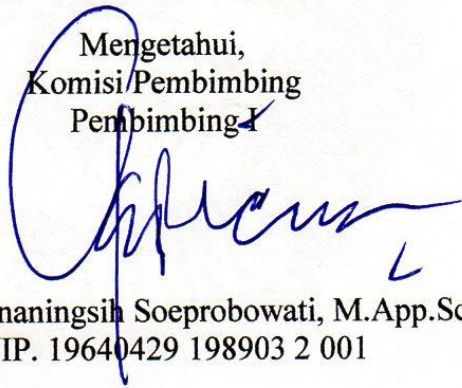 Mengetahui,
Komisi Pembimbing
Pembimbing I
naningsih Soeprobowati, M.App.Sc
IP. 19640429 198903 2 001